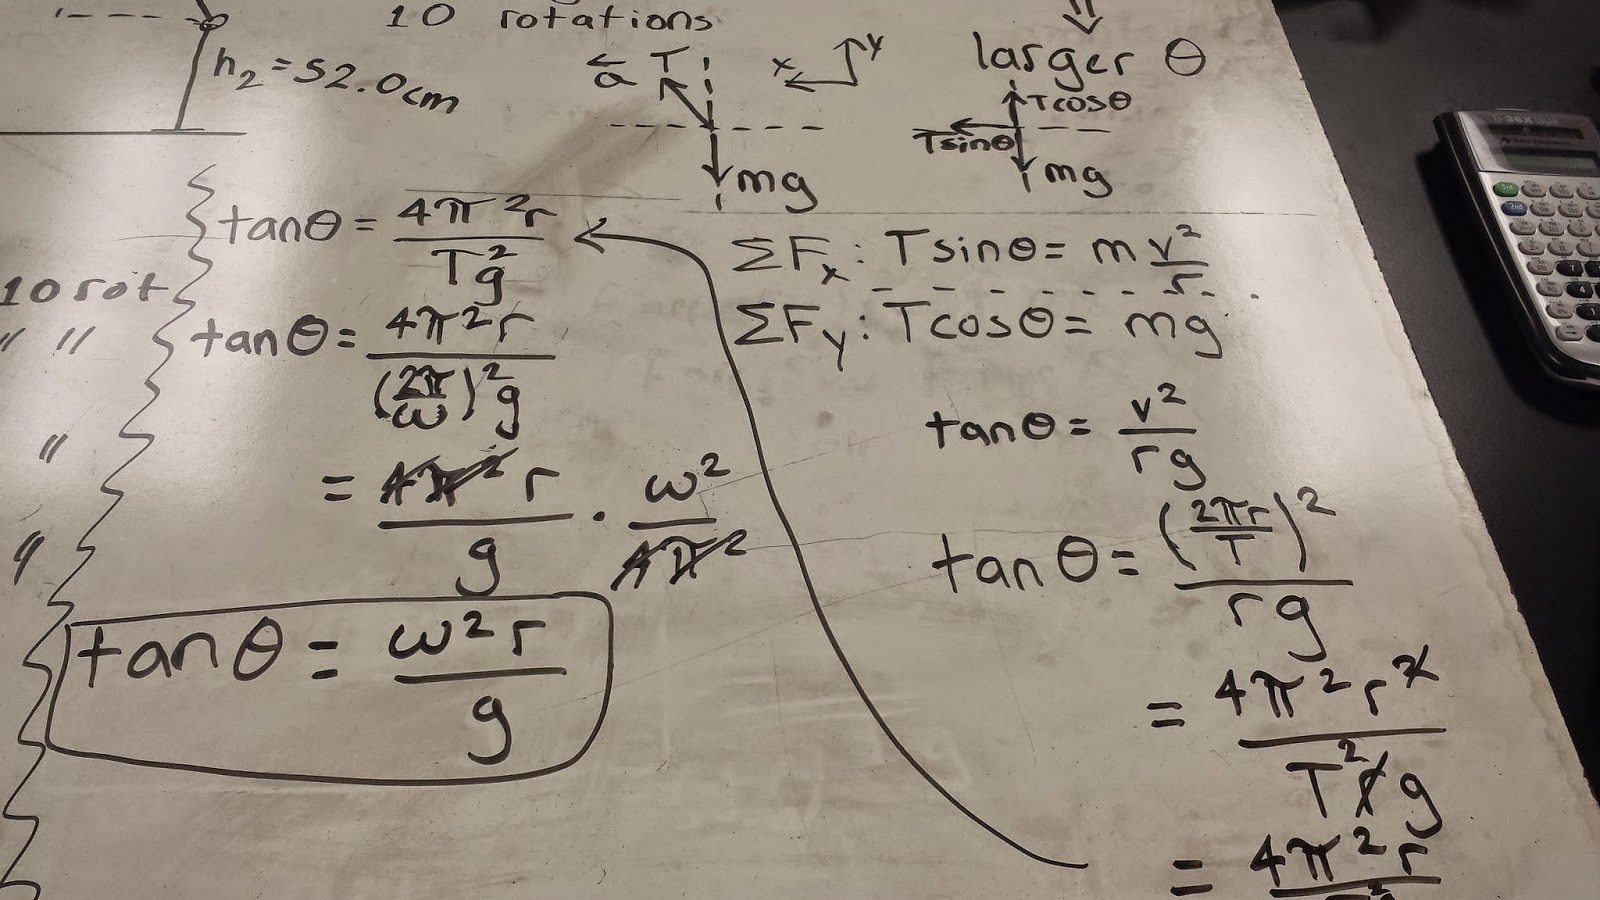 10 rotations
h₂ = 52.0cm
a T
x y
mg
larger θ
Tcosθ
Tsinθ
mg
10 rot
" "
"
"
tanθ = 4π²r / T²g
tanθ = 4π²r / (2π/ω)²g
= 4π²r / g · ω² / 4π²
tanθ = ω²r / g
ΣFx: Tsinθ = m v²/r
ΣFy: Tcosθ = mg
tanθ = v² / rg
tanθ = (2πr/T)² / rg
= 4π²r² / T²rg
= 4π²r
36X
2nd